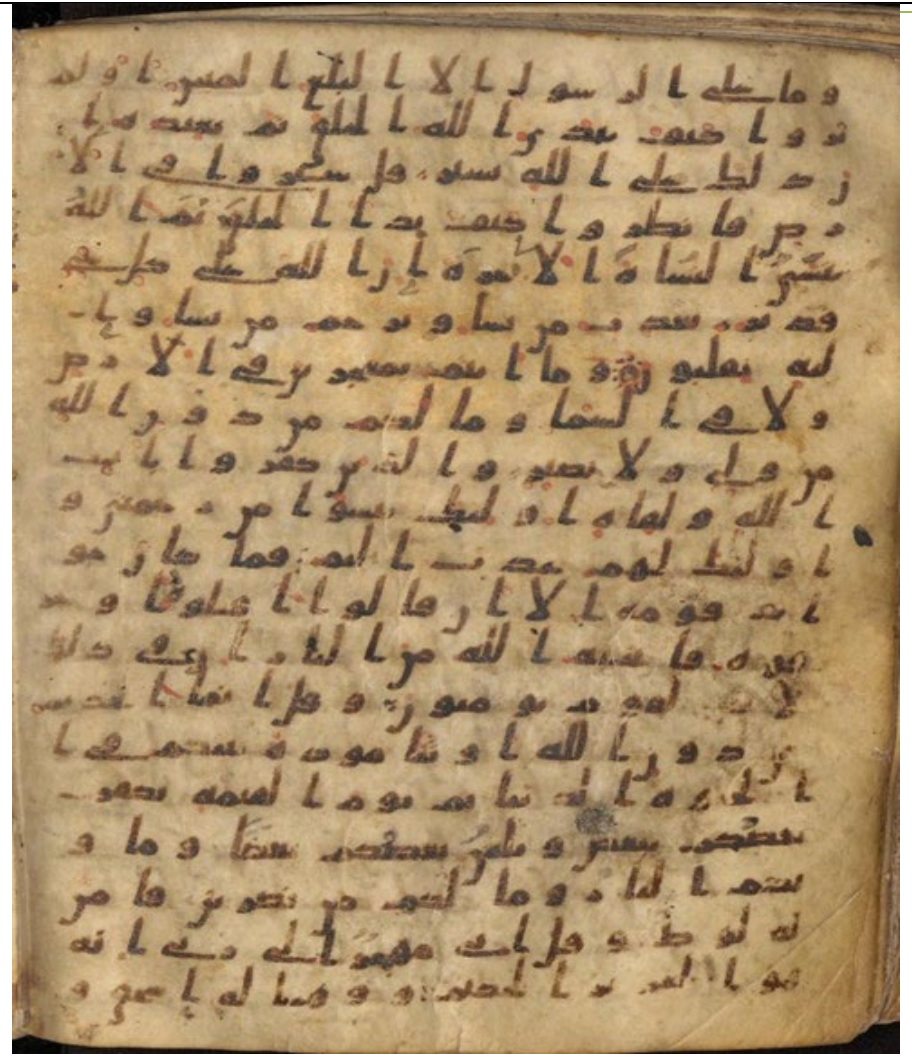 وما على الرسول الا البلغ المبين ا ولم
يروا كيف يبدى الله الخلق ثم يعيده ا
ن ذلك على الله يسير قل سيروا في الا
رض فانظروا كيف بدا الخلق ثم الله
ينشى النشاة الاخرة ان الله على كل شى
قدير يعذب من يشا ويرحم من يشا وا
ليه تقلبون وما انتم بمعجزين في الارض
ولا في السما وما لكم من دون الله
من ولي ولا نصير والذين كفروا بايت
الله ولقاه اولئك يئسوا من رحمتي و
اولئك لهم عذاب اليم فما كان جو
اب قومه الا ان قالوا اقتلوه او حر
قوه فانجيه الله من النار ان في ذلك
لايت لقوم يومنون وقال انما اتخذتم
من دون الله اوثنا مودة بينكم في ا
لحيوة الدنيا ثم يوم القيمة يكفر
بعضكم ببعض ويلعن بعضكم بعضا وماو
يكم النار وما لكم من نصرين فامن
له لوط وقال اني مهجر الى ربي انه
هو العزيز الحكيم ووهبنا له اسحق و